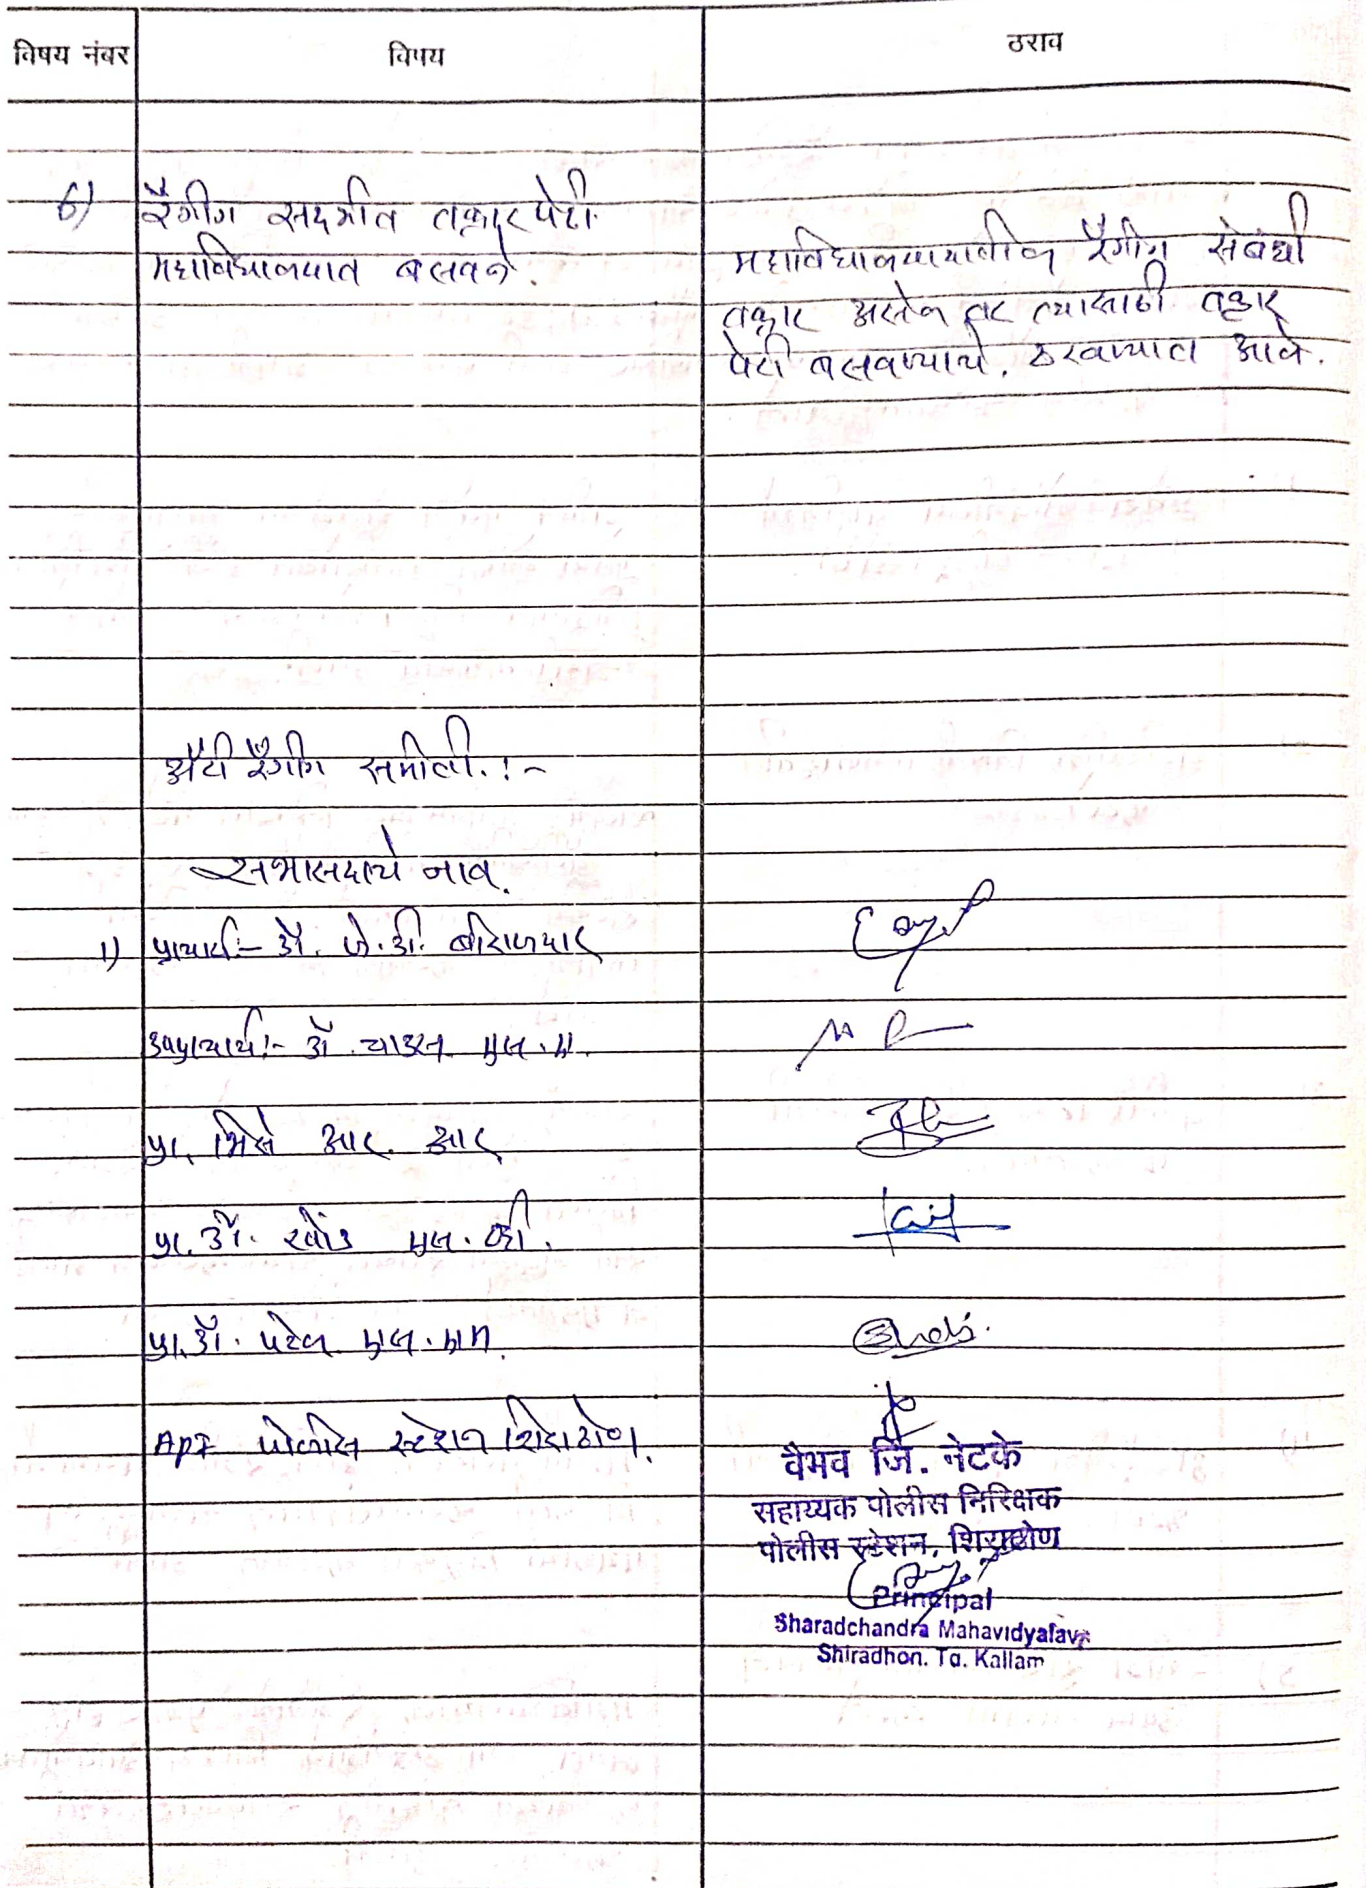 विषय नंबर
विषय
ठराव
6)
रॅगींग सदर्भात तक्रार पेटी
महाविद्यालयात बसवने.
महाविद्यालयायातील रॅगींग संबंधी
तक्रार असेल तर त्यासाठी तक्रार
पेटी बसवण्याचे. ठरवण्यात आले.
अँटी रॅगींग समीती.:-
सभासदाचे नाव.
1) प्राचार्य:- डॉ. जे.डी.
उपप्राचार्य:- डॉ. चाऊस एस.ए.
प्रा. भिसे आर. आर
प्रा. डॉ. एस. व्ही.
प्रा. डॉ. पटेल एस. एन.
API पोलीस स्टेशन शिराढोण.
वैभव जि. नेटके
सहाय्यक पोलीस निरिक्षक
पोलीस स्टेशन, शिराढोण
Principal
Sharadchandra Mahavidyalaya
Shiradhon. Tq. Kallam